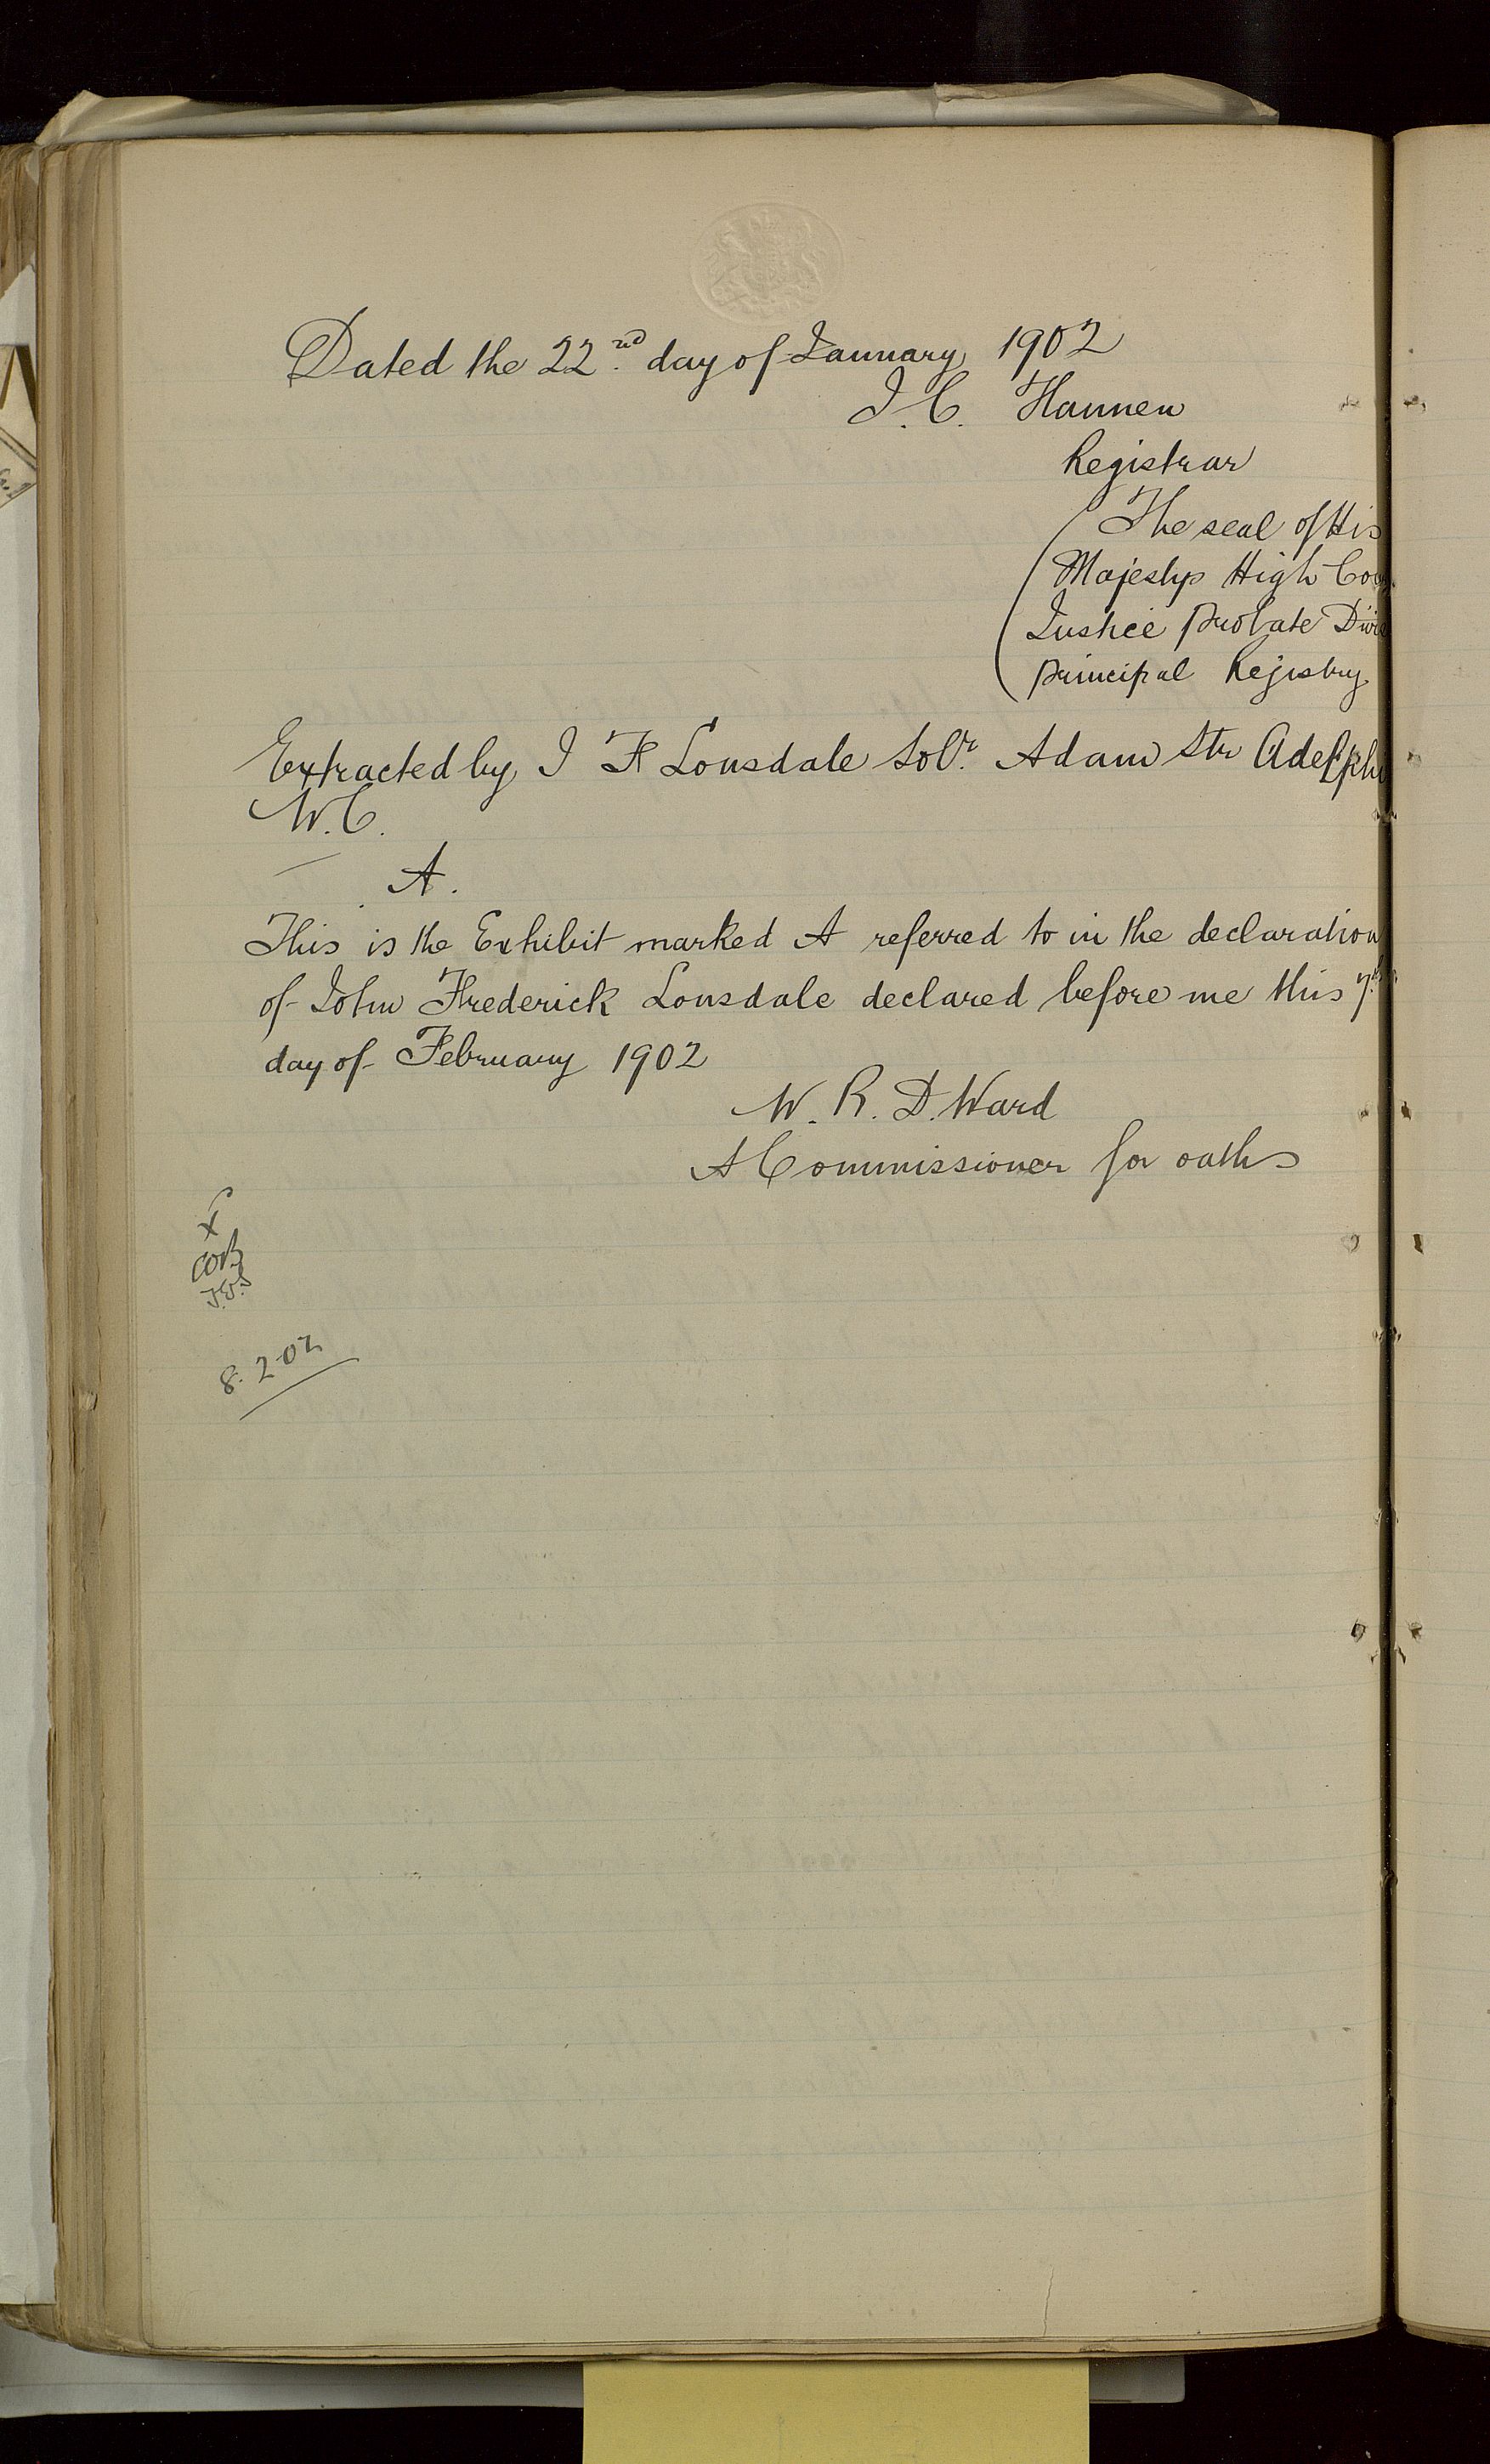 Dated the 22nd. day of January 1902
J. C. Hannen
Registrar
The seal of His
Majestys High Cou
Justice Probate Divis
Principal Registry
Extracted by J F Lonsdale Solr. Adam Str Adelphi
W.C.
A.
This is the Exhibit marked A referred to in the declaration
of John Frederick Lonsdale declared before me this 7th
day of February 1902
W. R. D. Ward
A Commissioner for oaths
x
8.2.02